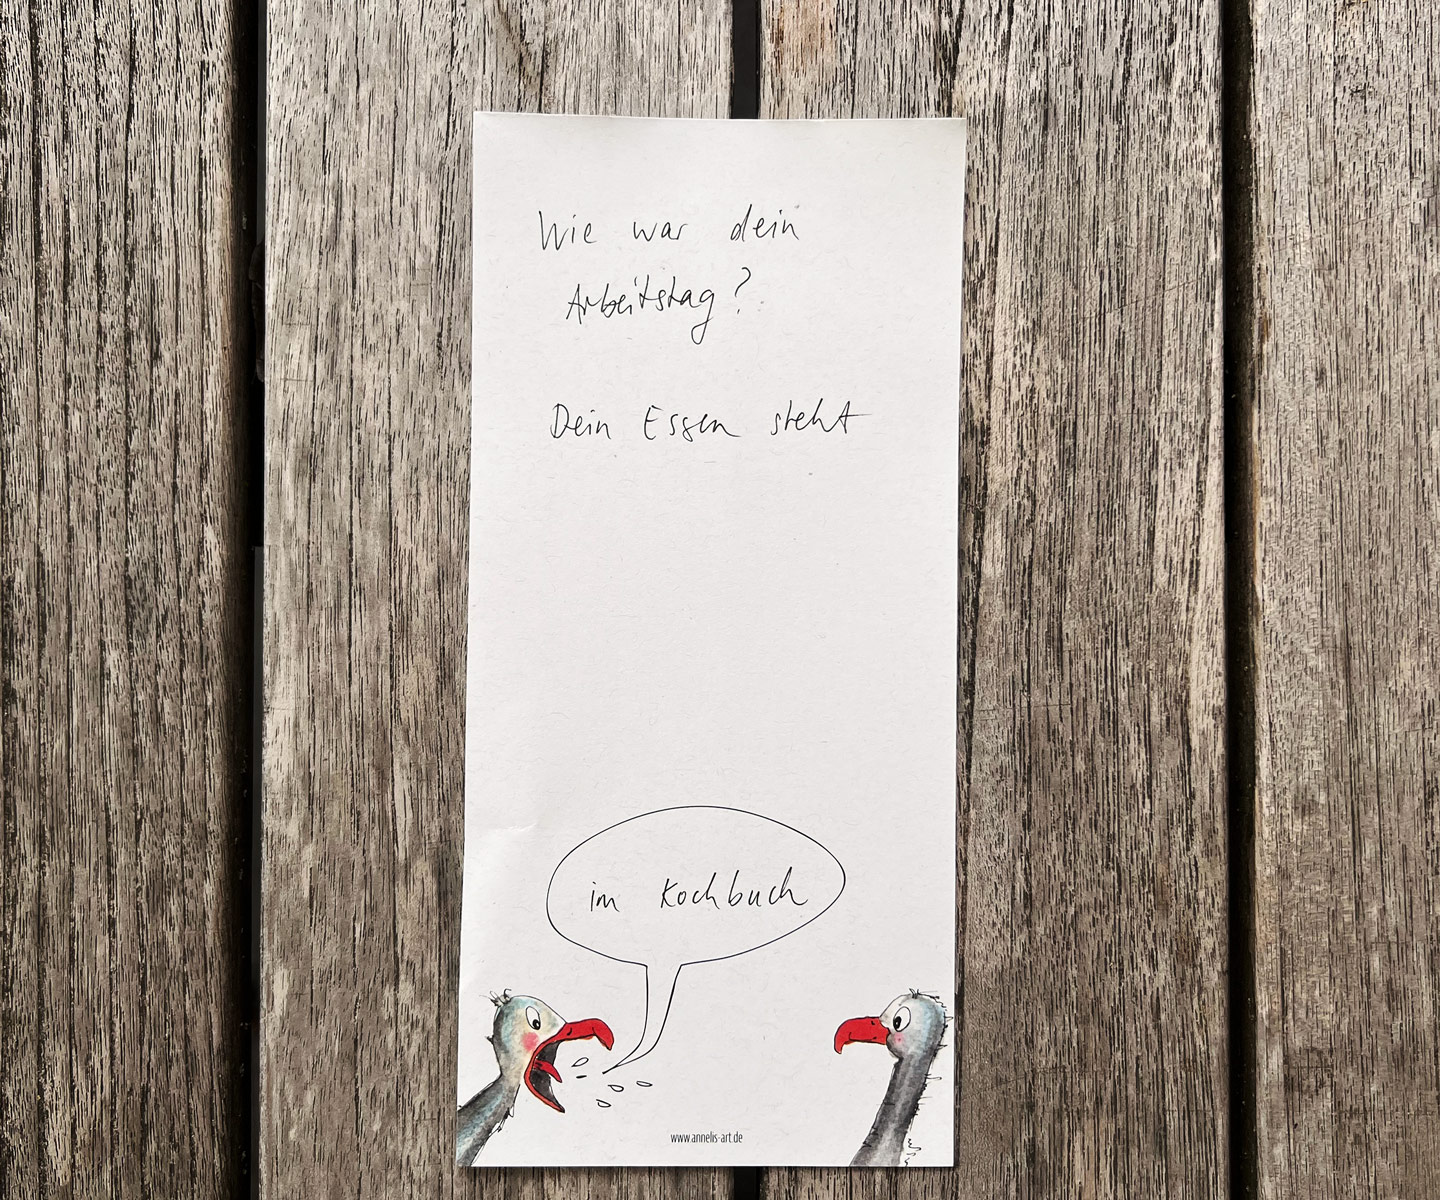 Wie war dein
Arbeitstag?
Dein Essen steht
im Kochbuch
www.annelis-art.de